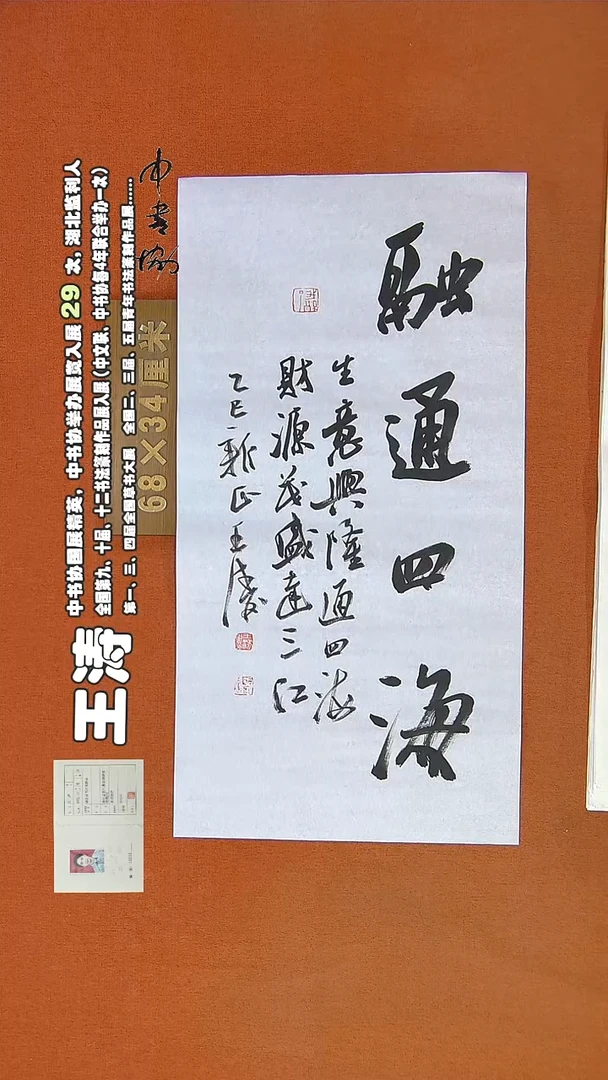 融通四海
生意興隆通四海
財源茂盛達三江
乙巳新正王濤
中書協
王涛
中书协国展精英，中书协举办展览入展 29 次，湖北监利人
全国第九、十届、十二书法篆刻作品展入展（中文联、中书协每4年联合举办一次）
第一、三、四届全国草书大展 全国二、三届、五届青年书法篆刻作品展......
68×34厘米